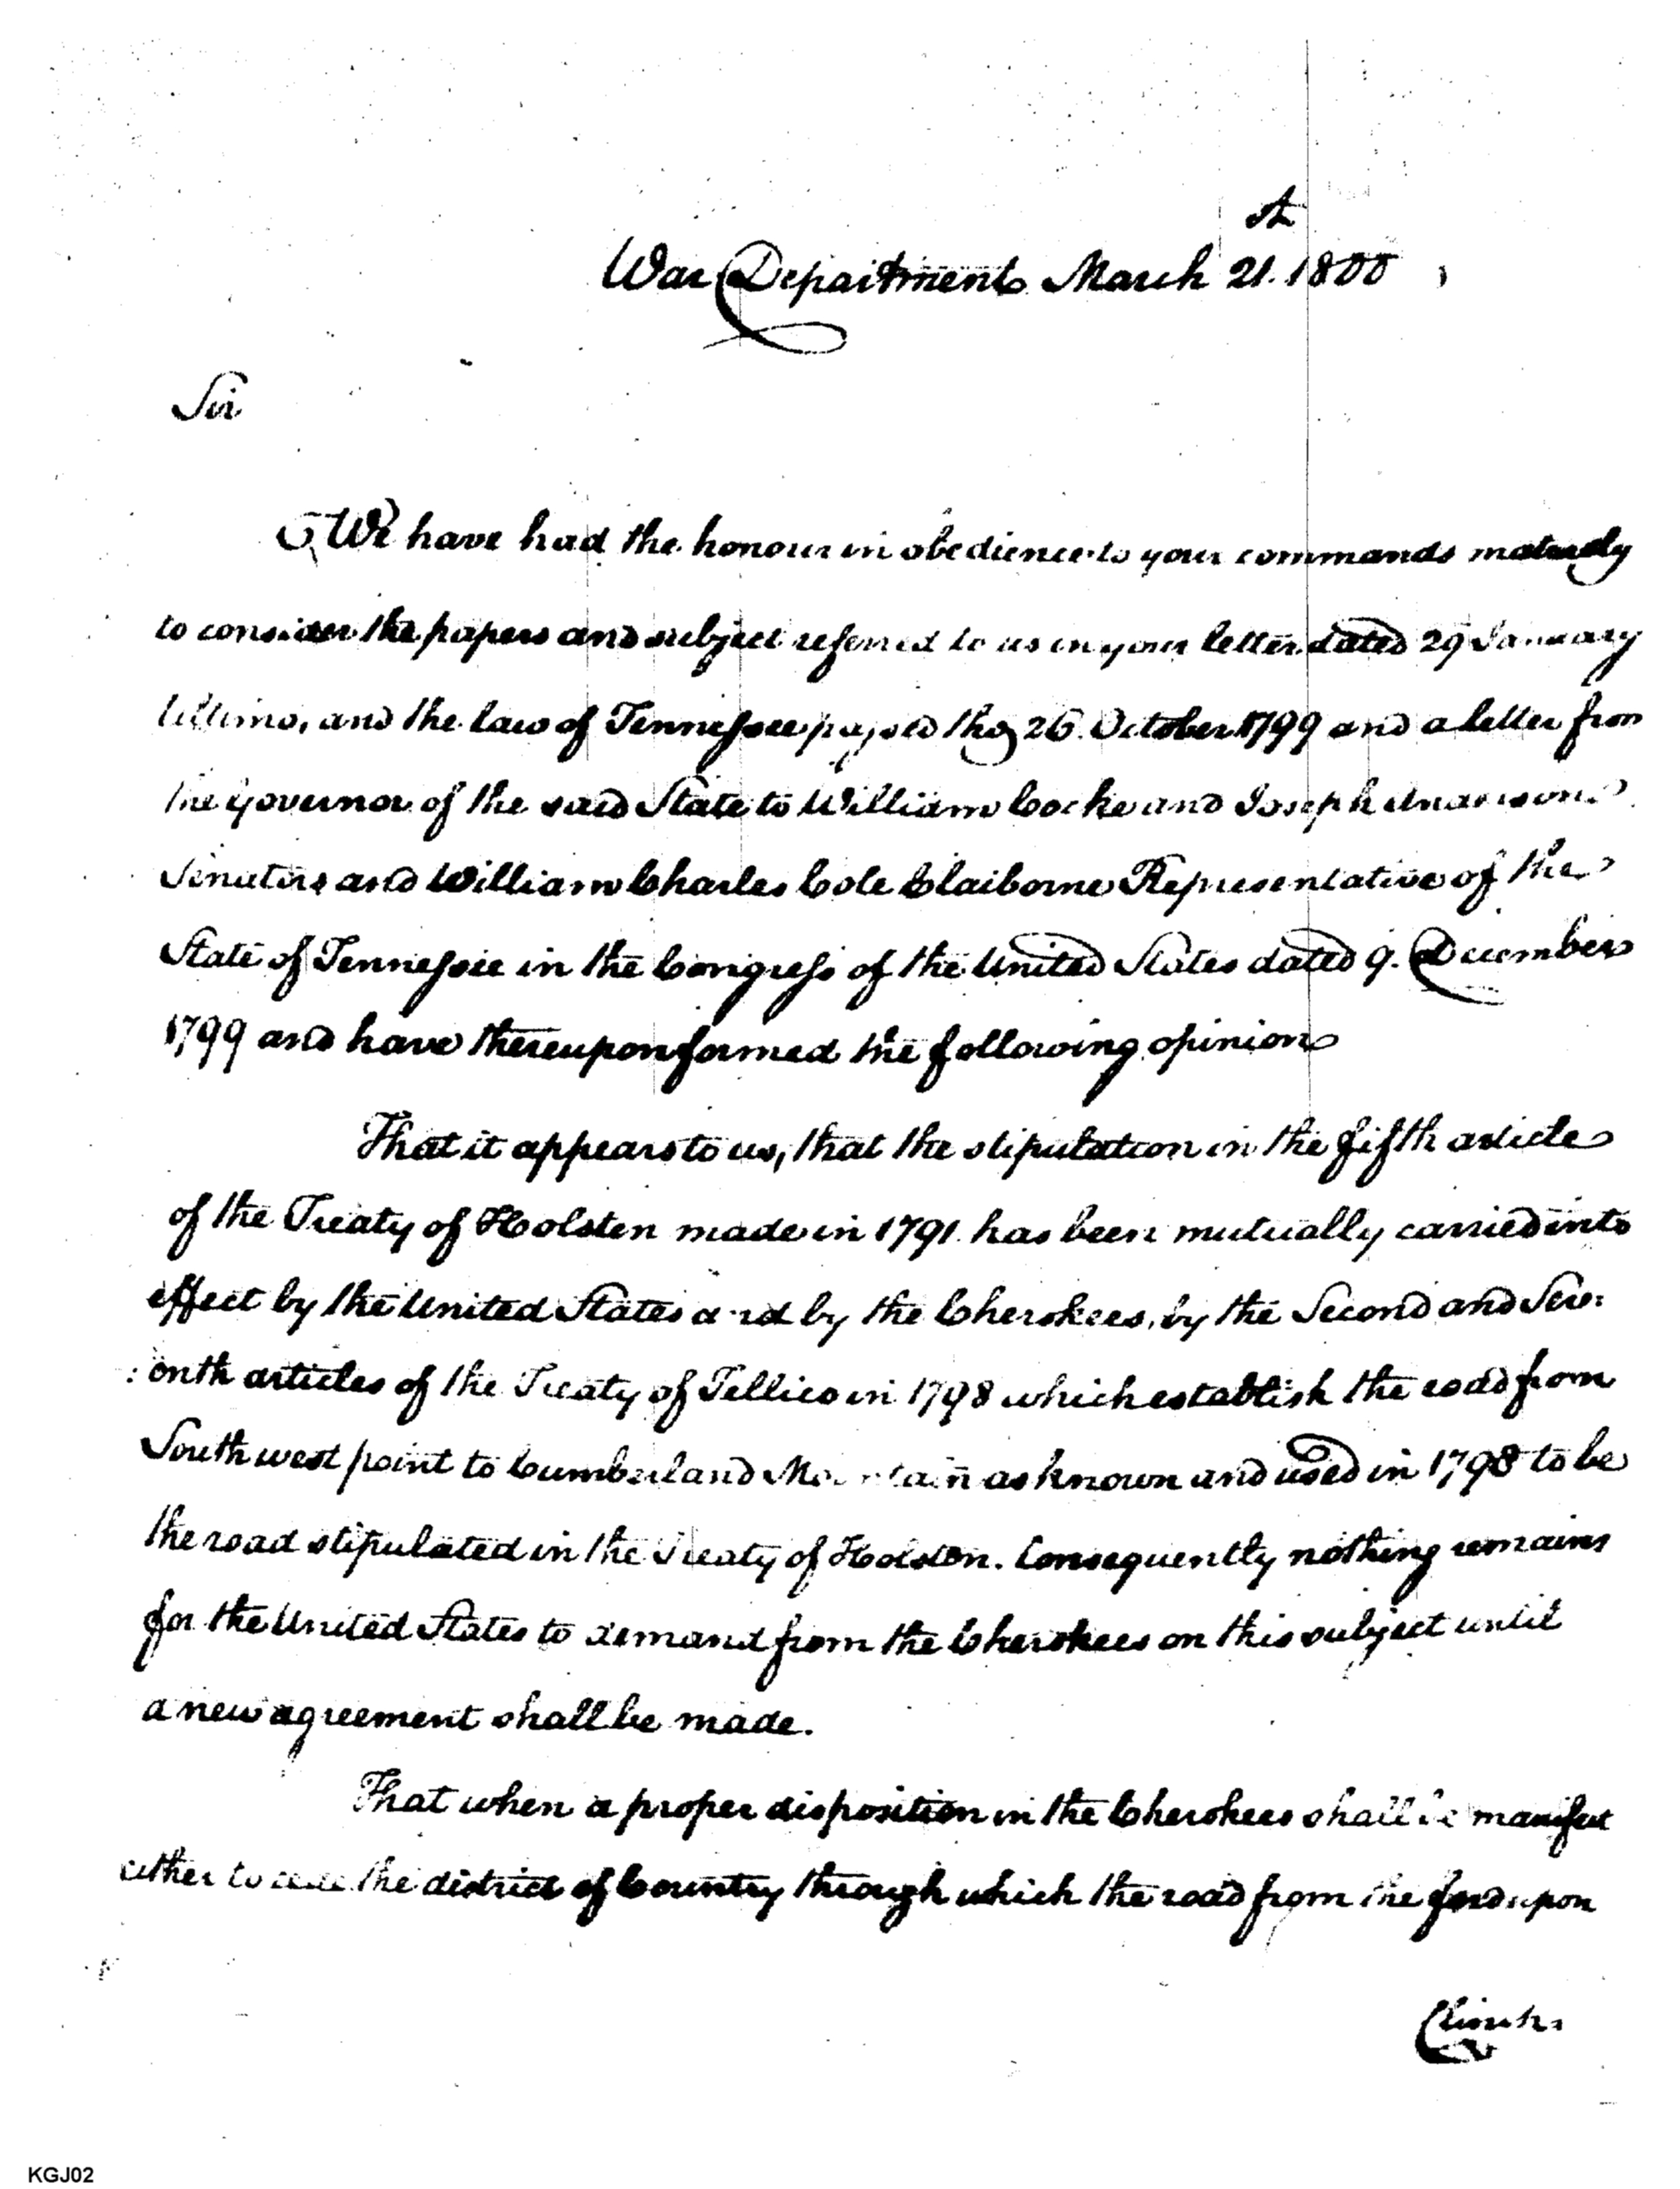 A
War Department March 21. 1800
Sir
We have had the honour in obedience to your commands maturely
to consider the papers and subject referred to us in your letter dated 29 January
Ultimo, and the law of Tennessee passed the 26. October 1799 and a letter from
the Governor of the said State to William Cocke and Joseph Anderson
Senators and William Charles Cole Claiborne Representative of the
State of Tennessee in the Congress of the United States dated 9. December
1799 and have thereupon formed the following opinion
That it appears to us, that the stipulation in the fifth article
of the Treaty of Holsten made in 1791 has been mutually carried into
effect by the United States and by the Cherokees, by the Second and Sev:
:enth articles of the Treaty of Tellico in 1798 which establish the road from
South west point to Cumberland Mountain as known and used in 1798 to be
the road stipulated in the Treaty of Holston. Consequently nothing remains
for the United States to demand from the Cherokees on this subject until
a new agreement shall be made.
That when a proper disposition in the Cherokees shall be manifest
either to cede the district of Country through which the road from the ford upon
Clinch
KGJ02